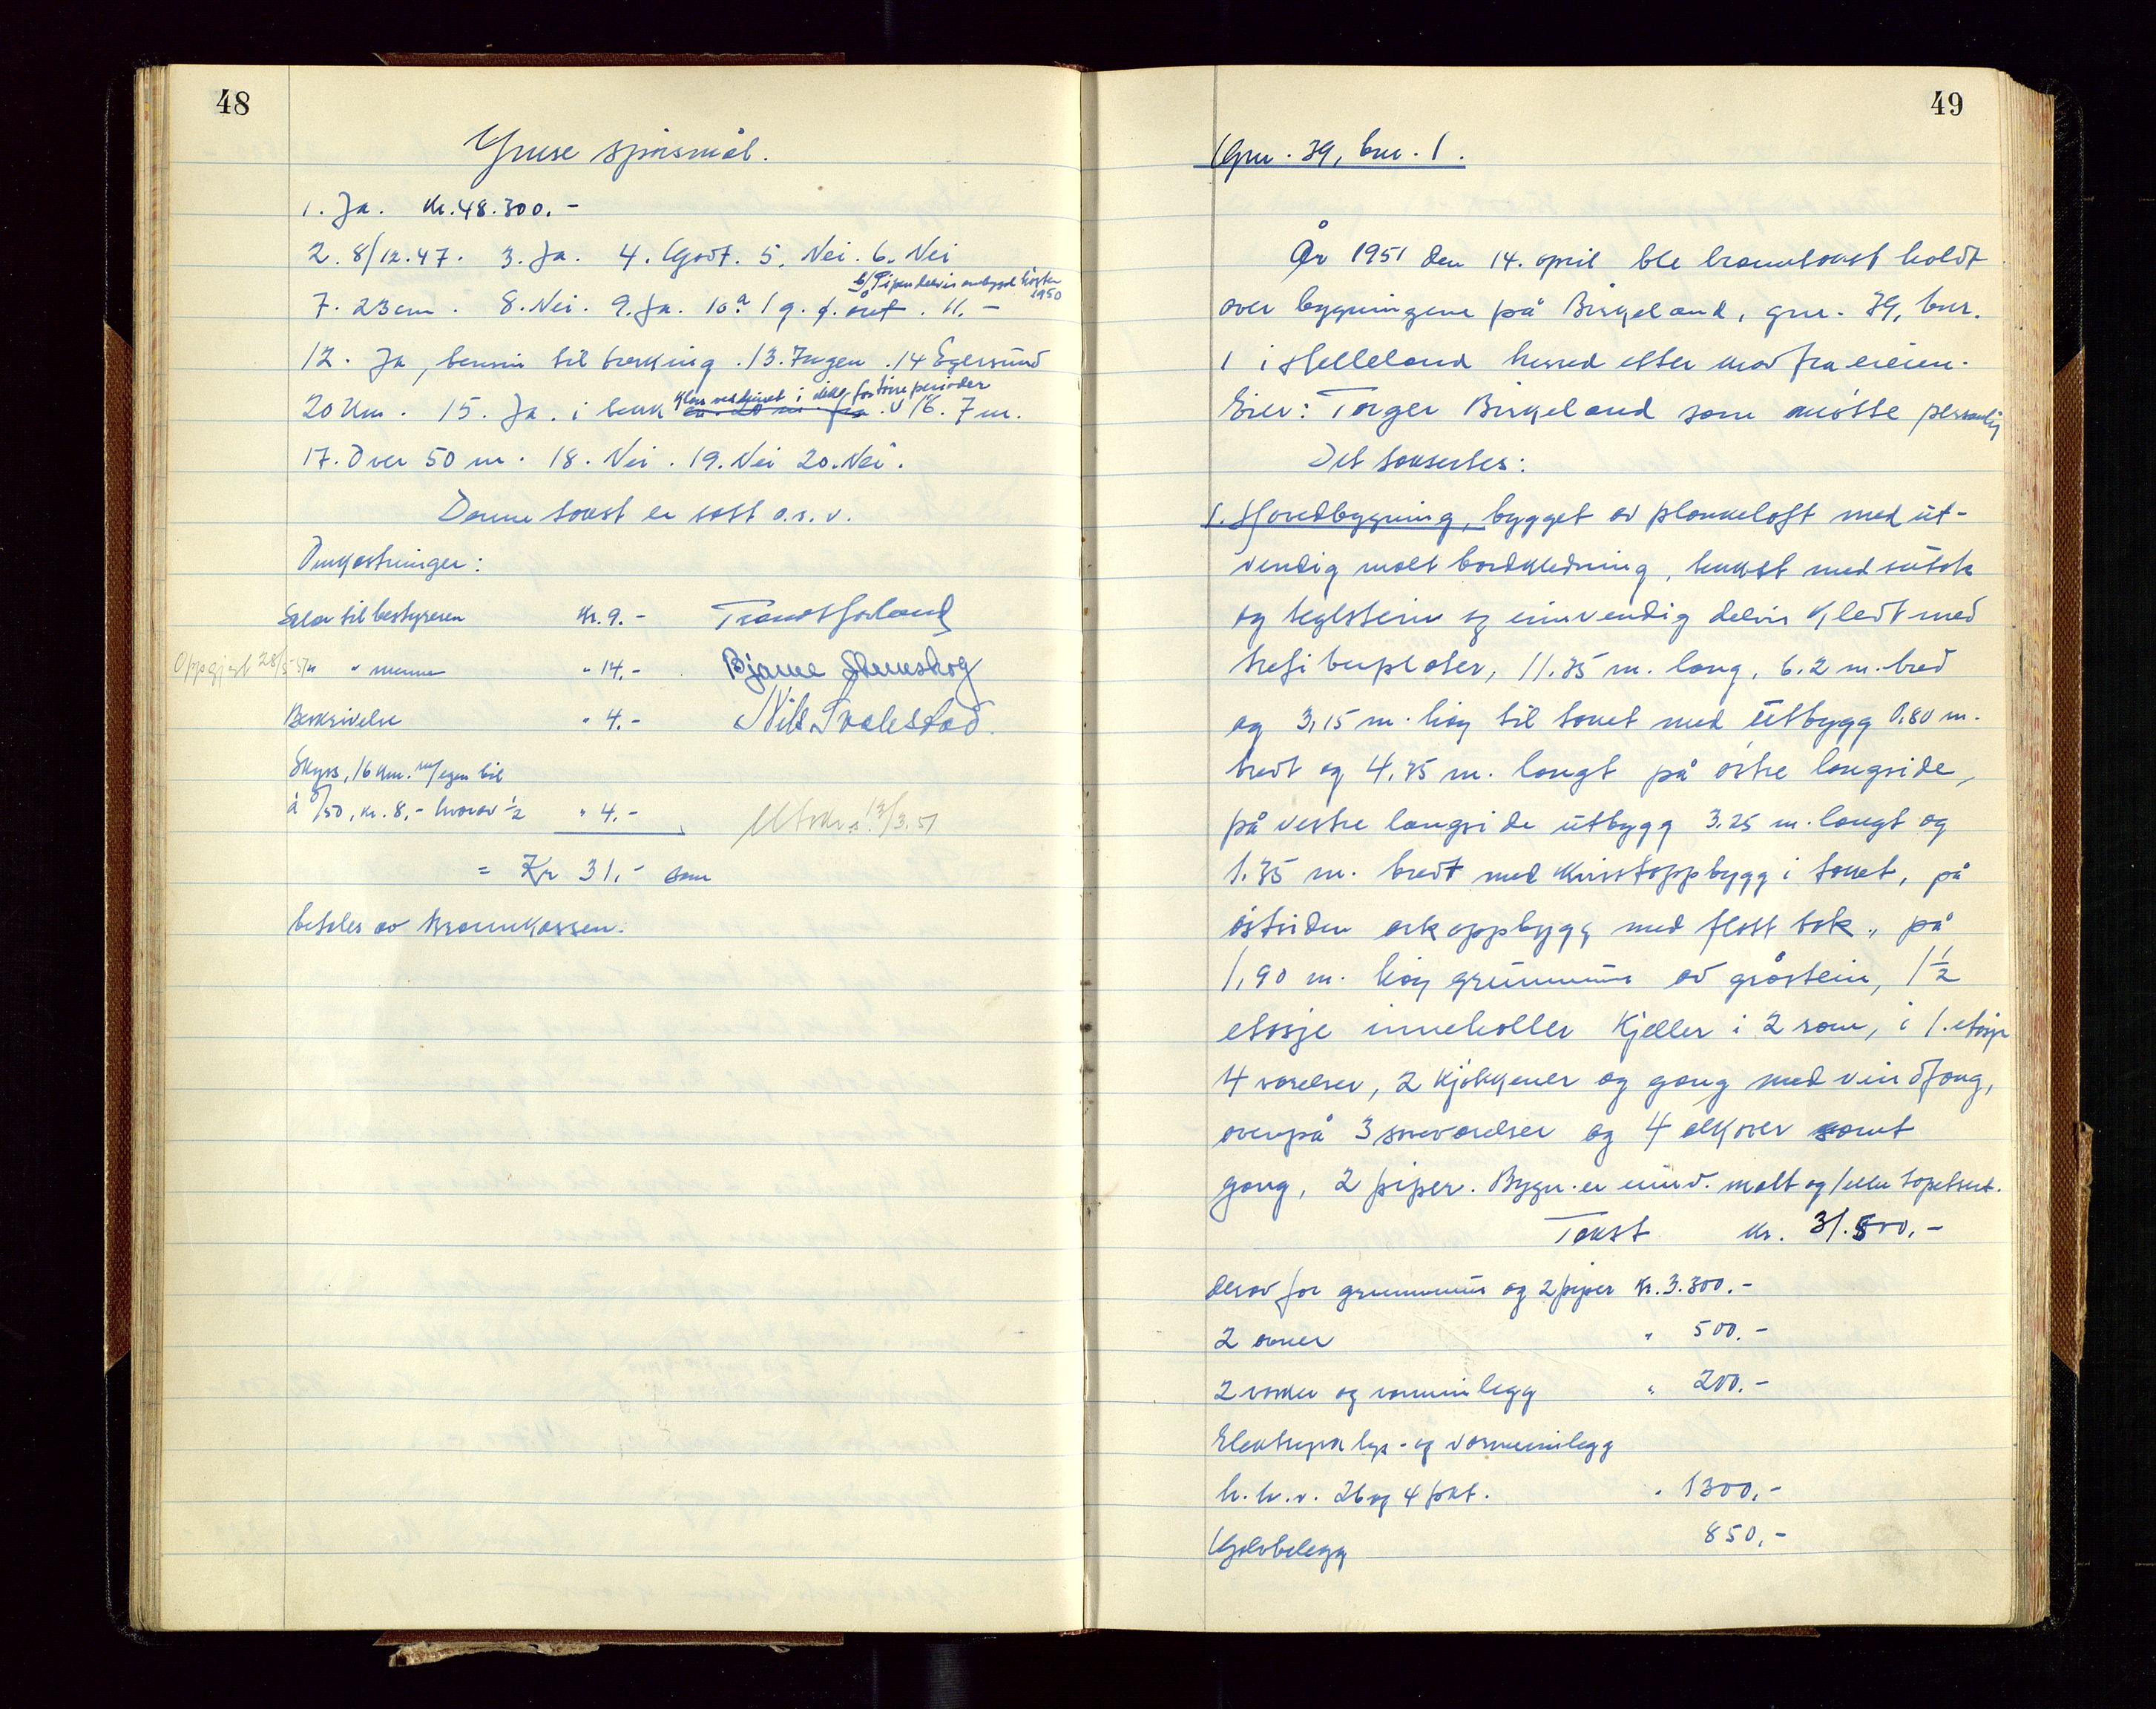 48
Ymse spörsmål.
1. Ja. Kr. 48.300.-
2. 8/12.47. 3. Ja. 4. Godt. 5. Nei. 6. Nei
b/ Pipen delvis ombygd hösten 1950
7. 23 cm. 8. Nei. 9. Ja. 10. a 1 g. p. året. 11. -
12. Ja, bensin til tresking. 13. Ingen. 14 Egersund
i törreperioder
20 Km. 15. Ja. i bekk ca. 20 m fra. 16. 7 m.
17. Over 50 m. 18. Nei. 19. Nei 20. Nei.
Denne takst er satt o.s.v.
Omkostninger:
til bestyreren Kr. 9.-
Oppgjort 28/5 51 " " menn " 14.- Bjarne
Beskrivelse " 4.- Nils Svalestad.
Skyss, 16 Km. m/egen bil
à 0/50, kr. 8,- hvorav 1/2 " 4.-
Utskr. 13/3.51
= Kr 31.- som
betales av Brannkassen.
49
Gnr. 39, bnr. 1.
År 1951 den 14. april ble branntakst holdt
over bygningene på Birkeland, gnr. 39, bnr.
1 i Helleland herred etter krav fra eieren.
Eier: Torger Birkeland som mötte personlig
Det taksertes:
1. Hovedbygning, bygget av plankelaft med ut-
vendig malt bordkledning, tekket med sutak
og teglstein og innvendig delvis kledt med
trefiberplater, 11.35 m. lang, 6.2 m. bred
og 3,15 m. höy til taket med utbygg 0.80 m.
bredt og 4,35 m. langt på östre langside,
på vestre langside utbygg 3.25 m. langt og
1.35 m. bredt med kvistoppbygg i taket, på
östsiden arkoppbygg med flatt tak, på
1,90 m. höy grunnmur av gråstein, 1 1/2
etasje inneholler kjeller i 2 rom, i 1. etasje
4 værelser, 2 kjökkener og gang med vindfang,
ovenpå 3 soveværelser og 4 alkover samt
gang, 2 piper. Bygn. er innv. malt og/eller tapetsert.
Takst Kr. 31.500.-
derav for grunnmur og 2 piper Kr. 3.300.-
2 ovner " 500.-
2 vasker og vanninlegg " 200.-
Elektrisk lys- og varmeinnlegg
h.h.v. 26 og 4 pkt. " 1300,-
Golvbelegg 850,-